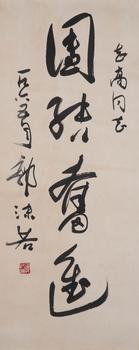 志高同志
團结奮進
一九六五年 郭沫若